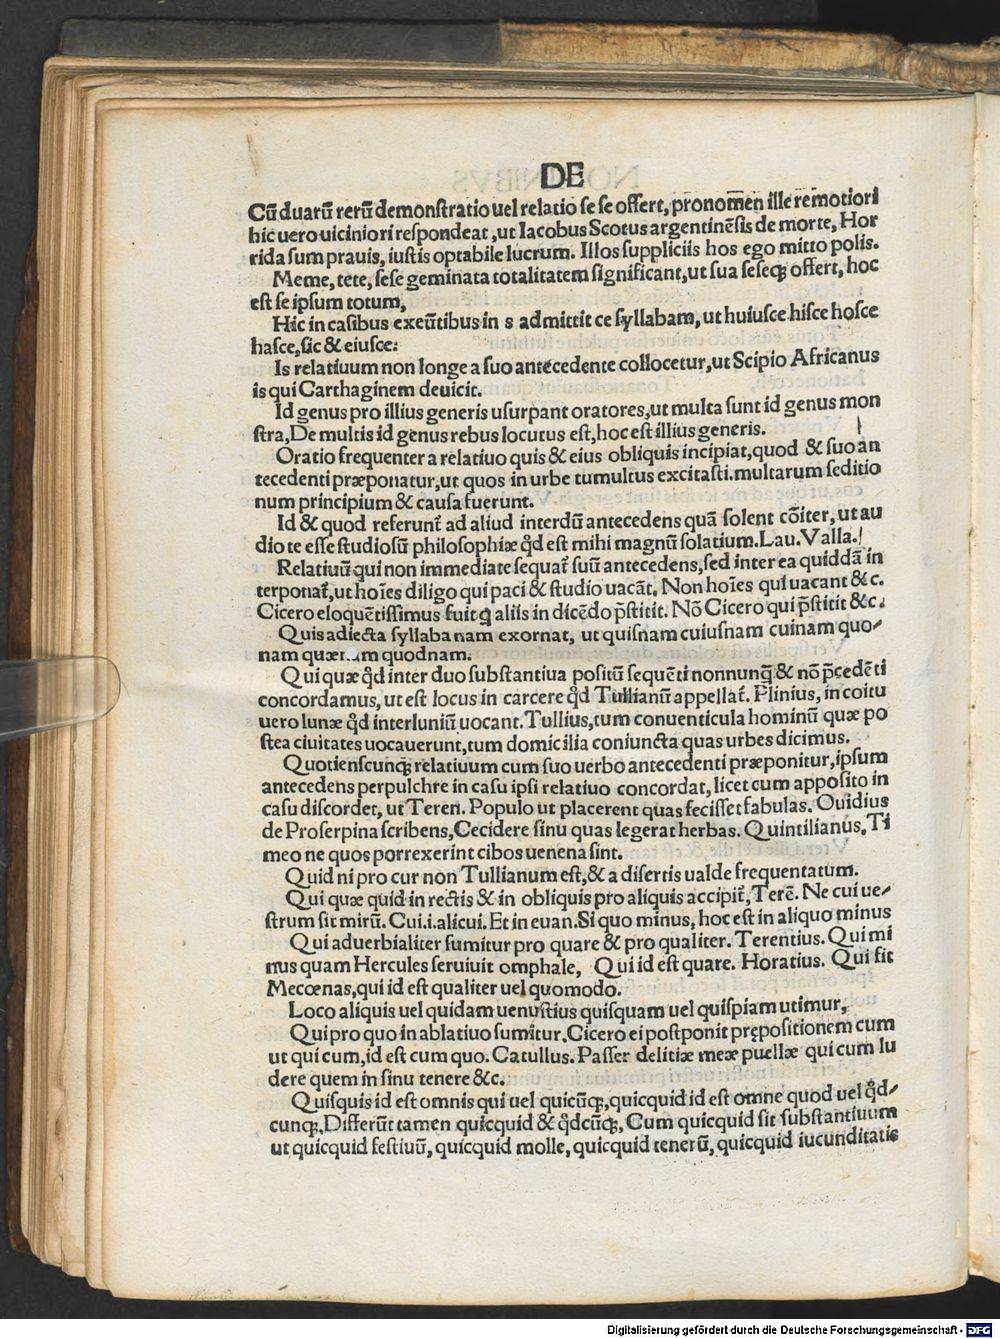 DE
Cū duarū rerū demonſtratio uel relatio ſe ſe offert, pronomen ille remotiori
hic uero uiciniori reſpondeat, ut Iacobus Scotus argentinēſis de morte, Hor
rida ſum prauis, iuſtis optabile lucrum. Illos ſuppliciis hos ego mitto polis.
Meme, tete, ſeſe geminata totalitatem ſignificant, ut ſua ſeſeq; offert, hoc
eſt ſe ipſum totum,
Hic in caſibus exeūtibus in s admittit ce ſyllabam, ut huiuſce hiſce hoſce
haſce, ſic & eiuſce.
Is relatiuum non longe a ſuo antecedente collocetur, ut Scipio Africanus
is qui Carthaginem deuicit.
Id genus pro illius generis uſurpant oratores, ut multa ſunt id genus mon
ſtra, De multis id genus rebus locutus eſt, hoc eſt illius generis.
Oratio frequenter a relatiuo quis & eius obliquis incipiat, quod & ſuo an
tecedenti præponatur, ut quos in urbe tumultus excitaſti. multarum ſeditio
num principium & cauſa fuerunt.
Id & quod referunt᷑ ad aliud interdū antecedens quā ſolent cōiter, ut au
dio te eſſe ſtudioſū philoſophiæ qd̓ eſt mihi magnū ſolatium. Lau. Valla.
Relatiuū qui non immediate ſequat᷑ ſuū antecedens, ſed inter ea quiddā in
terponat᷑, ut hoīes diligo qui paci & ſtudio uacāt. Non hoīes qui uacant &c.
Cicero eloquētiſſimus fuit ꝗ aliis in dicēdo p̄ſtitit. Nō Cicero qui p̄ſtitit &c.
Quis adiecta ſyllaba nam exornat, ut quiſnam cuiuſnam cuinam quo-
nam quænam quodnam.
Qui quæ qd̓ inter duo ſubſtantiua poſitū ſequēti nonnunꝗ̄ & nō p̄cedēti
concordamus, ut eſt locus in carcere qd̓ Tullianū appellat᷑. Plinius, in coitu
uero lunæ qd̓ interluniū uocant. Tullius, tum conuenticula hominū quæ po
ſtea ciuitates uocauerunt, tum domicilia coniuncta quas urbes dicimus.
Quotienſcunq; relatiuum cum ſuo uerbo antecedenti præponitur, ipſum
antecedens perpulchre in caſu ipſi relatiuo concordat, licet cum appoſito in
caſu diſcordet, ut Teren. Populo ut placerent quas feciſſet fabulas. Ouidius
de Proſerpina ſcribens, Cecidere ſinu quas legerat herbas. Quintilianus. Ti
meo ne quos porrexerint cibos uenena ſint.
Quid ni pro cur non Tullianum eſt, & a diſertis ualde frequentatum.
Qui quæ quid in rectis & in obliquis pro aliquis accipit᷑, Terē. Ne cui ue-
ſtrum ſit mirū. Cui.i.alicui. Et in euan. Si quo minus, hoc eſt in aliquo minus
Qui aduerbialiter ſumitur pro quare & pro qualiter. Terentius. Qui mi
nus quam Hercules ſeruiuit omphale, Qui id eſt quare. Horatius. Qui fit
Mecœnas, qui id eſt qualiter uel quomodo.
Loco aliquis uel quidam uenuſtius quiſquam uel quiſpiam utimur,
Qui pro quo in ablatiuo ſumitur. Cicero ei poſtponit prępoſitionem cum
ut qui cum, id eſt cum quo. Catullus. Paſſer delitiæ meæ puellæ qui cum lu
dere quem in ſinu tenere &c.
Quiſquis id eſt omnis qui uel quicūq;, quicquid id eſt omne quod uel qd̓-
cunq;. Differūt tamen quicquid & qd̓cūq;, Cum quicquid ſit ſubſtantiuum
ut quicquid feſtiuū, quicquid molle, quicquid tenerū, quicquid iucunditatis
Digitalisierung gefördert durch die Deutsche Forschungsgemeinschaft - DFG